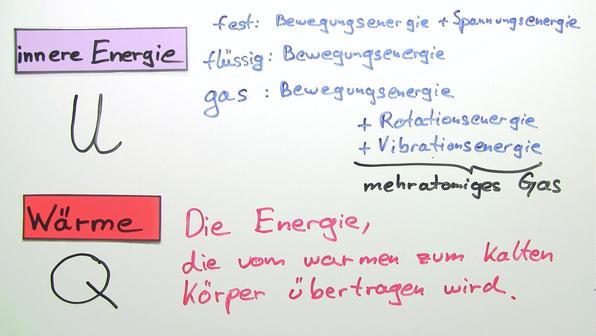 innere Energie
U
fest: Bewegungsenergie + Spannungsenergie
flüssig: Bewegungsenergie
gas : Bewegungsenergie
+ Rotationsenergie
+ Vibrationsenergie
mehratomiges Gas
Wärme
Q
Die Energie,
die vom warmen zum kalten
Körper übertragen wird.